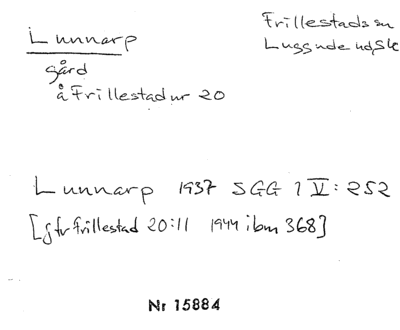 Lunnarp
Frillestads sn
Luggude hd, Sk
gård
å Frillestad nr 20
Lunnarp 1937 SGG 1 V: 252
[jfr Frillestad 20:11 1944 ibm 368]
Nr 15884